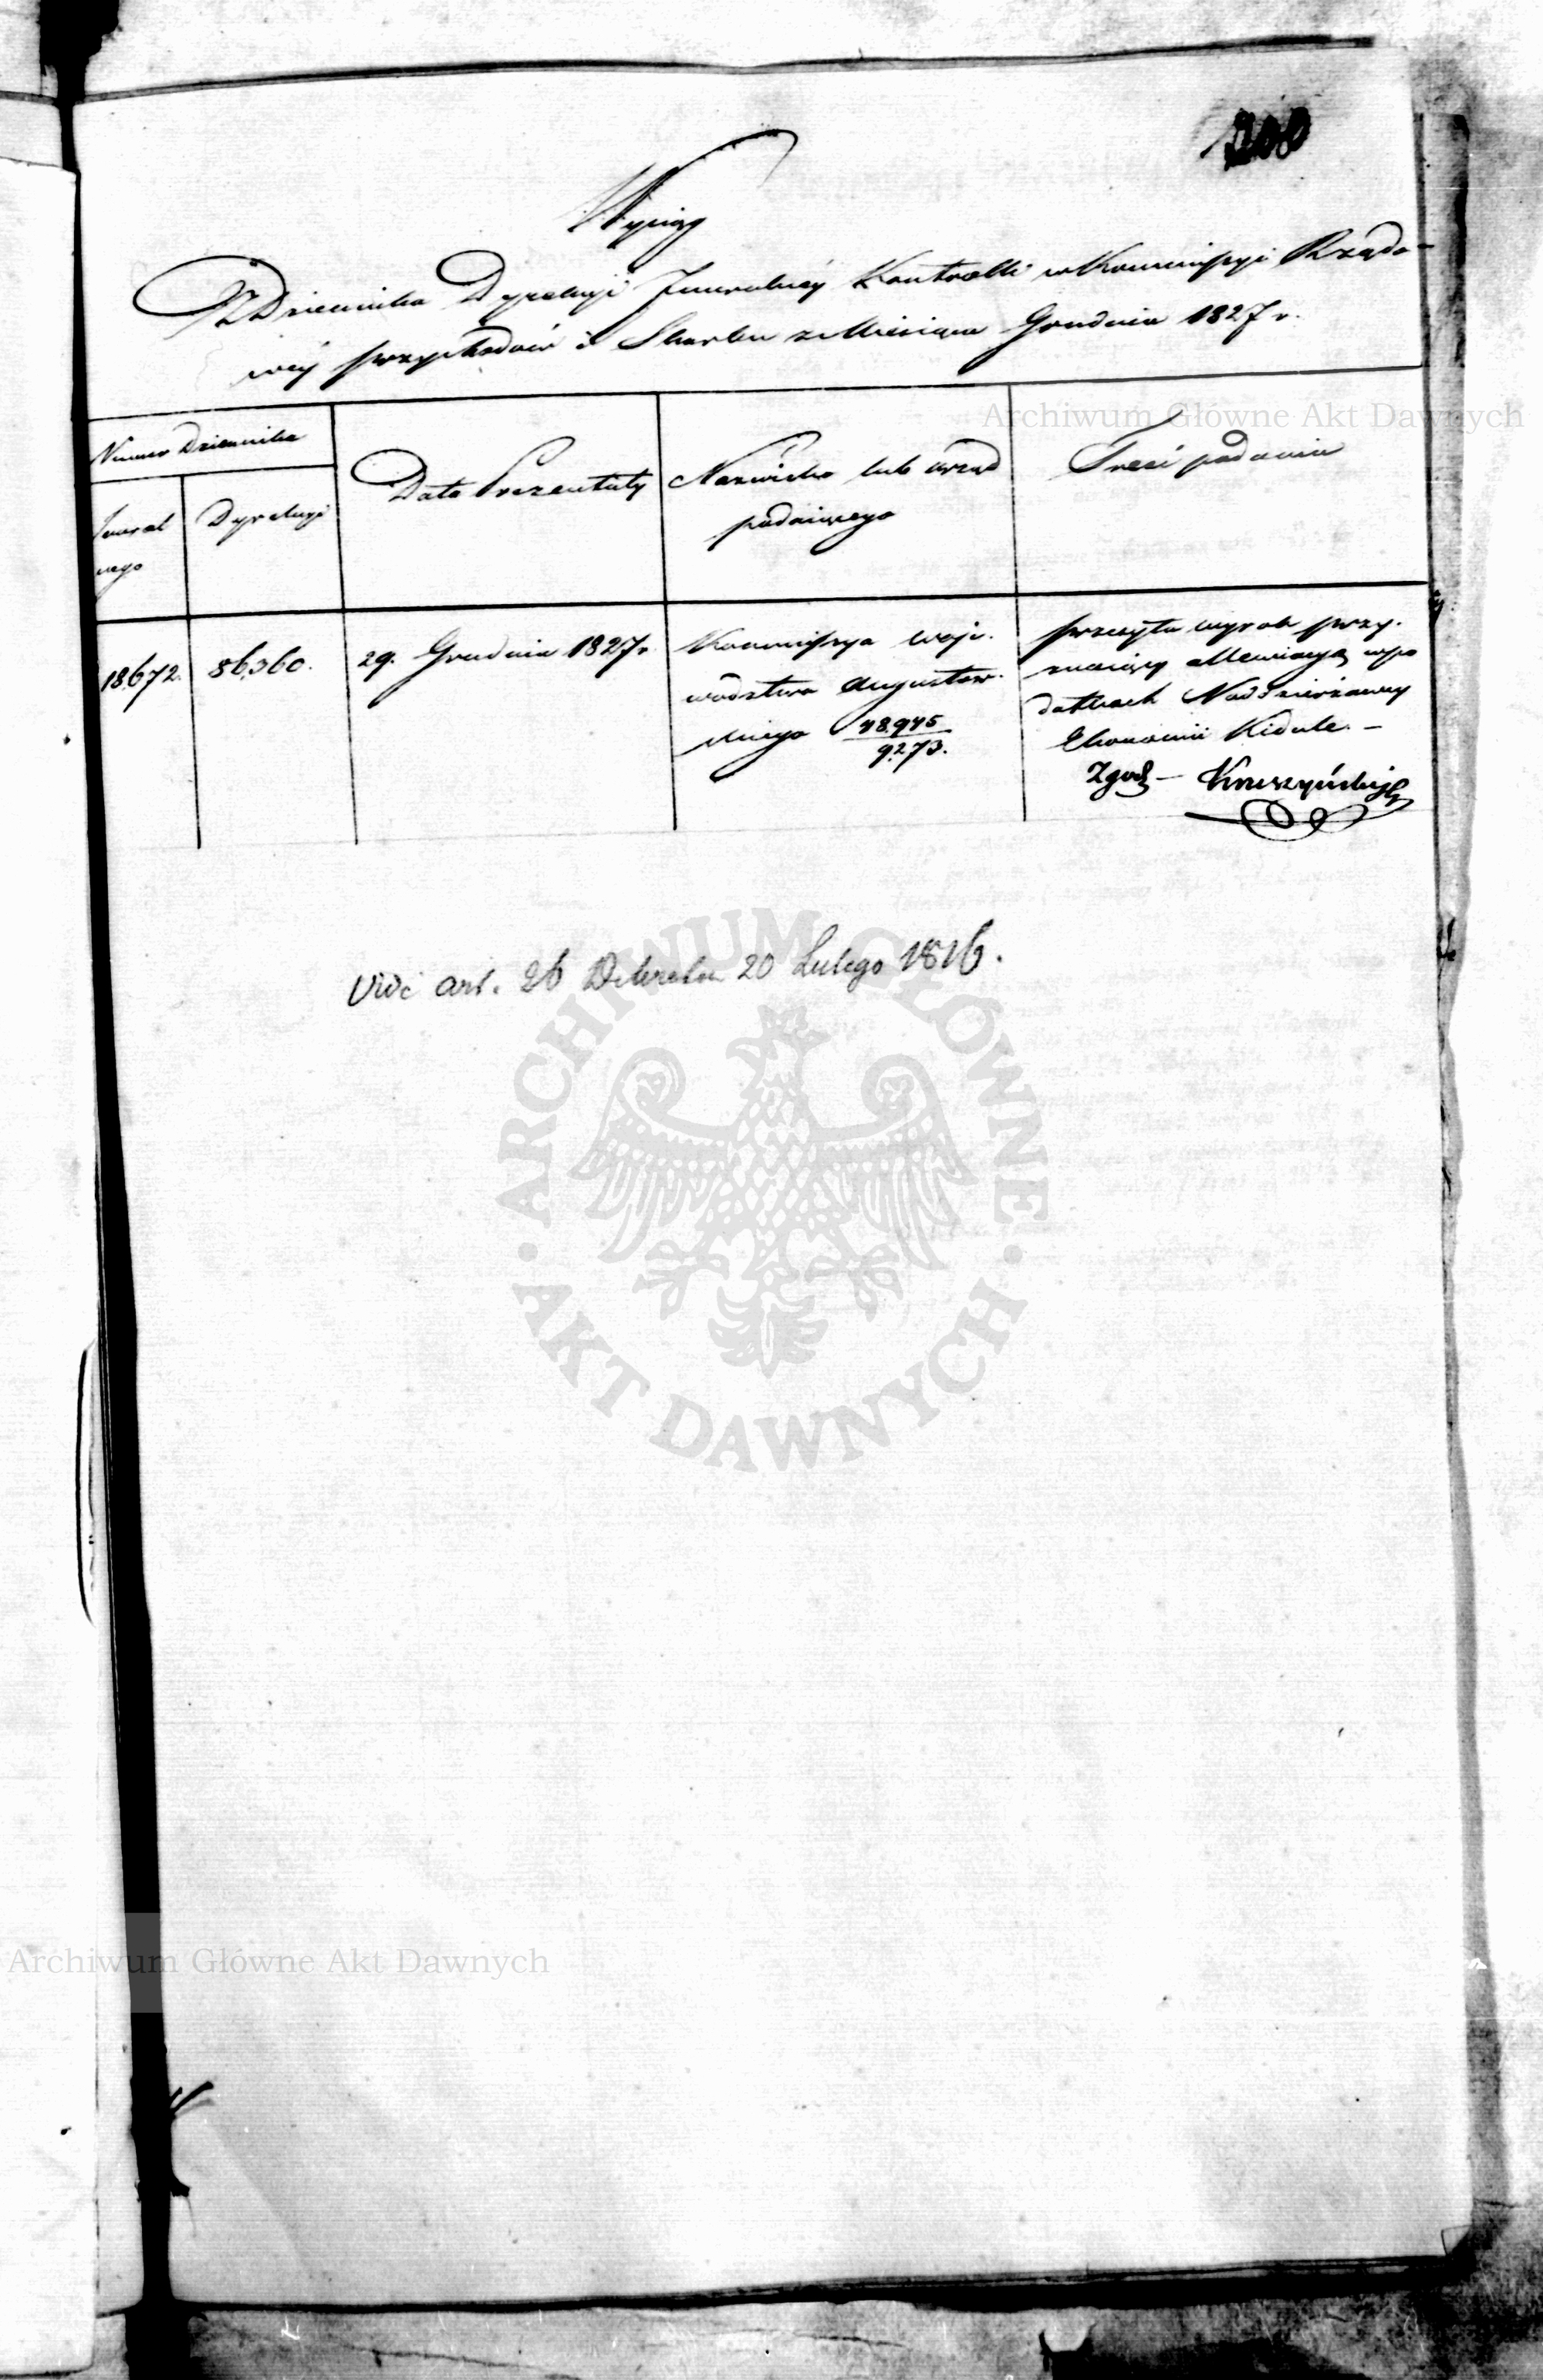 208
Wyciąg
Z Dziennika Dyrekcyi Jeneralnéy Kontrolli w Kommissyi Rządo-
wéy przychodów i Skarbu z Miesiąca Grudnia 1827 r.
Archiwum Główne Akt Dawnych
Numer Dziennika
Jeneral
nego
Dyrekcyi
Data Prezentaty
Nazwisko lub urząd
podaiącego
Treść podania
18672.
86,360.
29. Grudnia 1827 r
Kommissya woje.
wodztwa Augustow.
skiego 48,945
9273.
przesyła wyrok przy.
znaiący w po
datkach Naddzierżawcy
Ekonomii Kidule. –
Zgod – Kruszyński
Vide art. 26 Dekretu 20 Lutego 1816.
ARCHIWUM GŁÓWNE
AKT DAWNYCH
Archiwum Główne Akt Dawnych